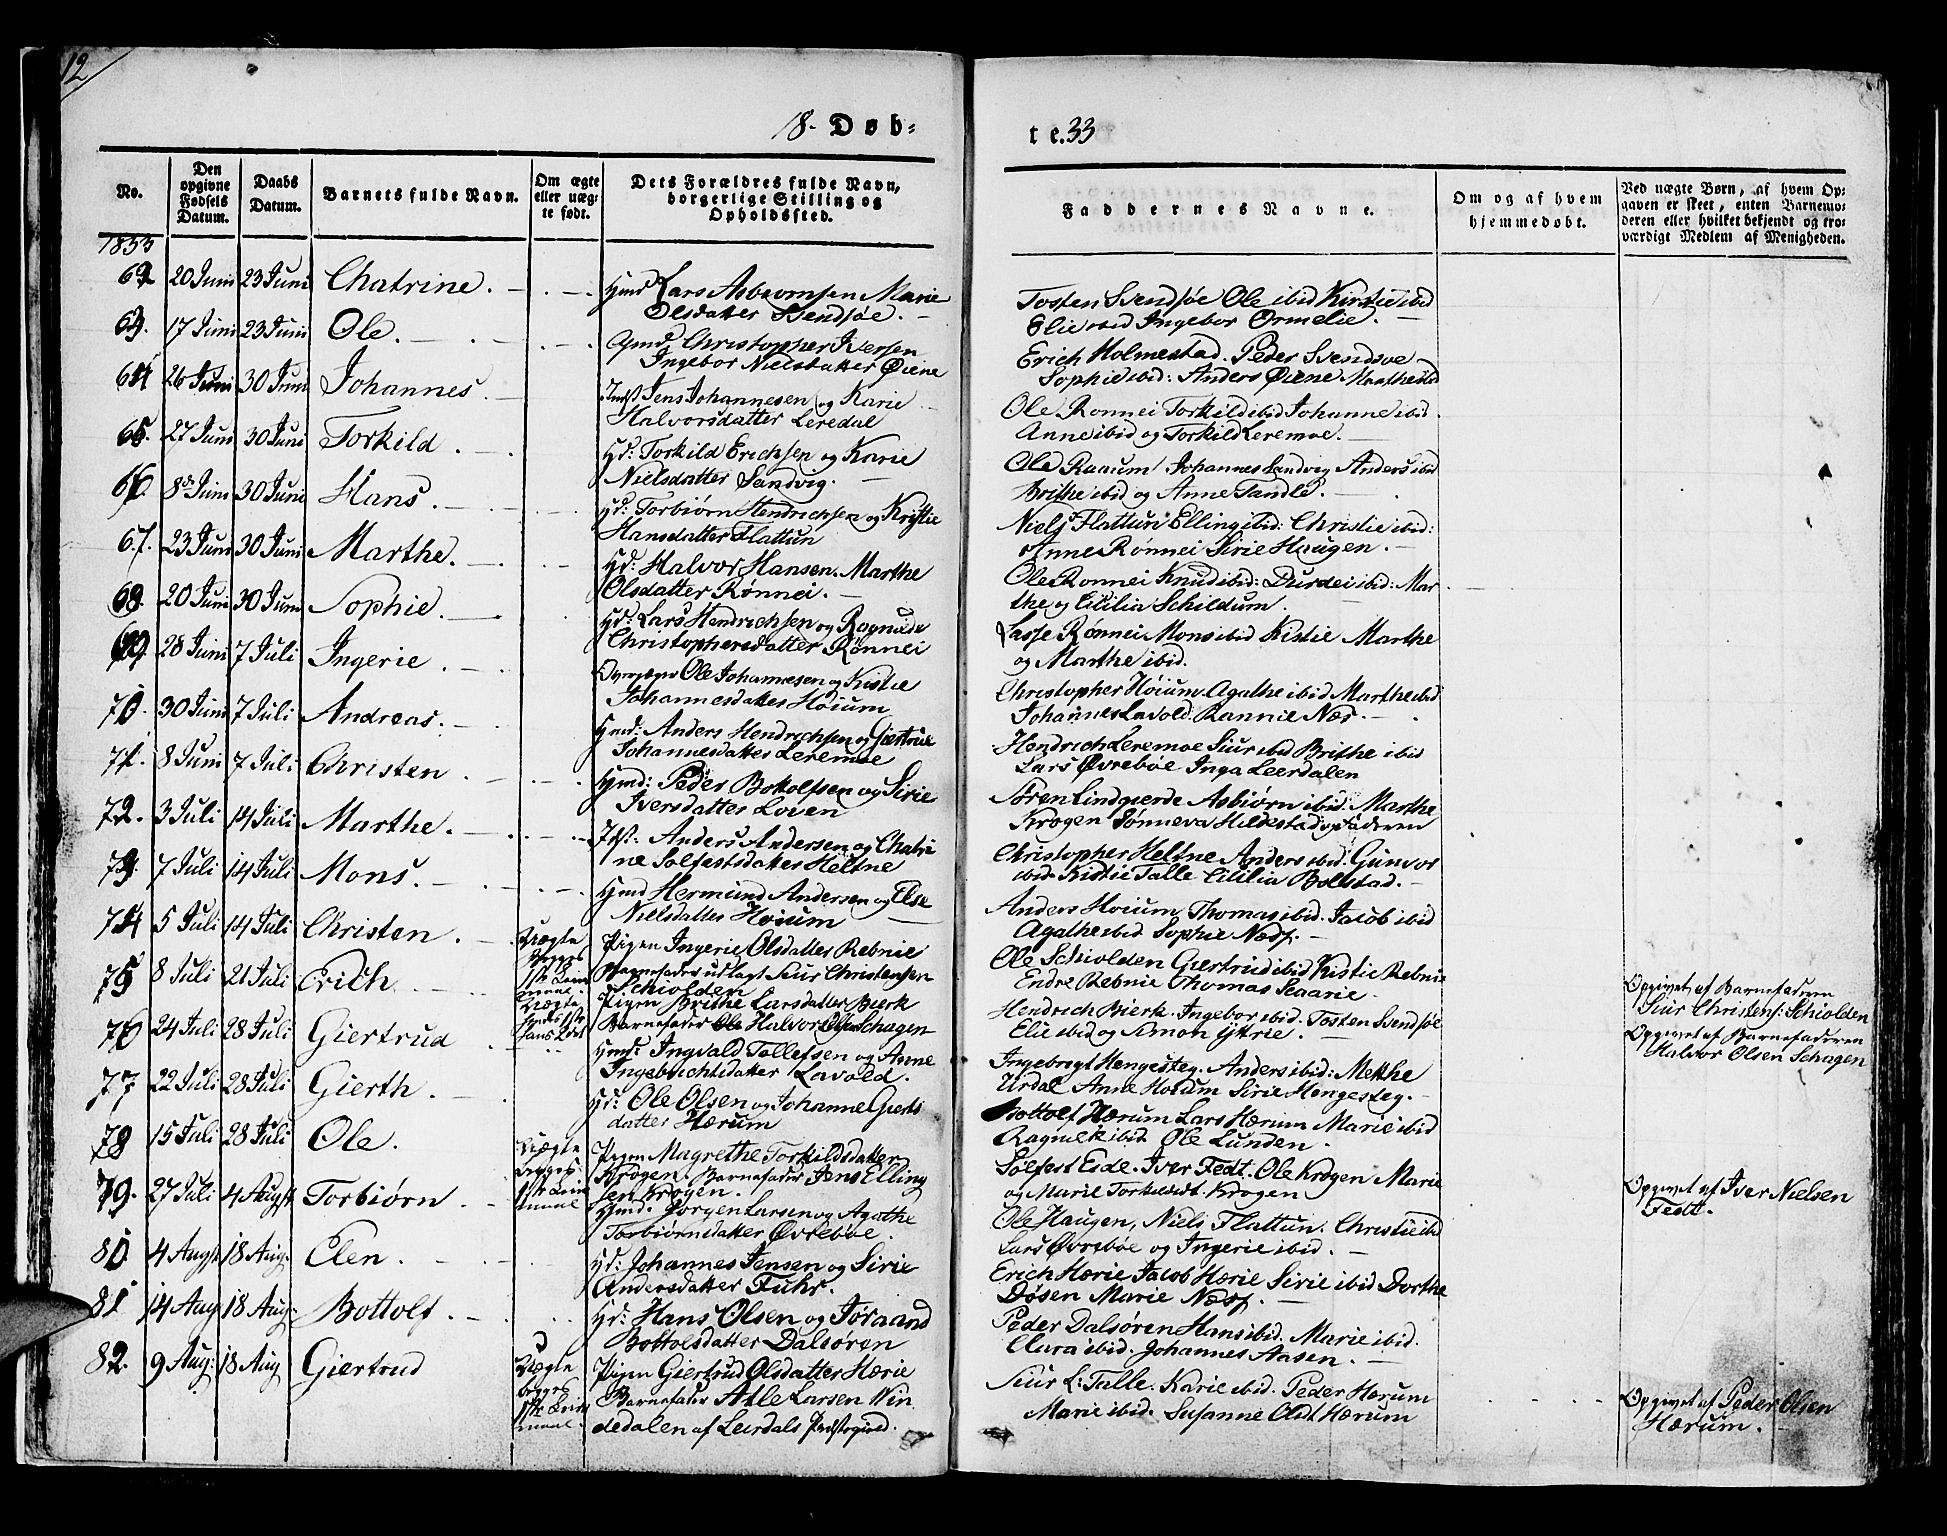 12
18. Døb-
te. 33
No.
Den
opgivne
Fødsels
Datum.
Daabs
Datum.
Barnets fulde Navn.
Om ægte
eller uæg-
te født.
Dets Forældres fulde Navn,
borgerlige Stilling og
Opholdssted.
Faddernes Navne.
Om og af hvem
hjemmedøbt.
Ved uægte Børn, af hvem Op-
gaven er skeet, enten Barnemo-
deren eller hvilket bekjendt og tro-
værdigt Medlem af Menigheden.
1833
62 20 Juni 23 Juni Chatrine.
Lars Asbiornsen Marie
Olsdatter Svendsøe.
Tosten Svendsøe Ole ibid Kirstie ibid
Elie ibid Ingebor Ormelie.
63. 17 Juni 23 Juni Ole.
Gmd Christopher Iversen
Ingebor Nielsdatter Øiene
Erich Holmestad. Peder Svendsøe
Sophie ibid: Anders Øiene Marthe ibid
64 26 Juni 30 Juni Johannes.
Indst Jens Johannesen og Karie
Halvorsdatter Leredal
Ole Ronnei Torkild ibid Johanne ibid.
Anne ibid og Torkild Leremoe.
65. 27 Juni 30 Juni Torkild.
Torkild Erichsen og Karie
Nielsdatter Sandvig.
Ole Raaum Johannes Sandvig Anders ibid
Brithe ibid og Anne Tandle.
66. 8 Juni 30 Juni Hans.
Torbiørn Hendrichsen og Kristie
Hansdatter Flattun
Niels Flattun Elling ibid: Christie ibid:
Anne Rønnei Sirie Haugen.
67. 23 Juni 30 Juni Marthe.
Halvor Hansen. Marthe
Olsdatter Rønnei.
Ole Ronnei Knud ibid: Durdei ibid: Mar
the og Cicilia Schildum.
68. 20 Juni 30 Juni Sophie.
Lars Hendrichsen og Ragnilde
Christophersdatter Rønnei
Lasse Rønnei Mons ibid Kistie Marthe
og Marthe ibid.
69 28 Juni 7 Juli Ingerie.
Ole Johannesen og Kistie
Johannesdatter Høium
Christopher Høium Agathe ibid Marthe ibid
Johannes Lavold Rannie Næs.
70. 30 Juni 7 Juli Andreas.
Anders Hendrichsen og Giertrue
Johannesdatter Leremoe
Hendrich Leremoe Siur ibid Brithe ibid
Lars Øvrebøe Inga Leerdalen
71. 8 Juni 7 Juli Christen
Peder Bottolfsen og Sirie
Iversdatter Loven
Søren Lindqverde Asbiørn ibid: Marthe
Krogen Sønneva Hildestad og Faderen
72. 3 Juli 14 Juli Marthe.
Anders Andersen og Chatri
ne Solfestsdatter Heltne
Christopher Heltne Anders ibid: Gunvor
ibid. Kistie Talle Cicilia Bolstad.
73. 7 Juli 14 Juli Mons.
Hermund Andersen og Else
Nielsdatter Høium
Anders Høium. Thomas ibid. Jacob ibid
Agathe ibid Sophie Næss.
74 5 Juli 14 Juli Christen.
Uægte
Pigen Ingerie Olsdatter Rebnie
Barnefader udlagt Siur Christensen
Schiolden
Ole Schiolden Giertrud ibid Kistie Rebnie
Endre Rebnie Thomas Scaarie.
Opgivet af Barnefaderen
Siur Christens: Schiolden
75 8 Juli 21 Juli Erich
Uægte
Pigen Brithe Larsdatter Bierk
Barnefader Ole Halvor Olsen Schagen
Hendrich Bierk. Ingebor ibid. Tosten Svendsøe
Elie ibid og Simon Yttrie.
Opgivet af Barnefaderen
Halvor Olsen Schagen
76 24 Juli 28 Juli Giertrud
Ingvald Tollefsen og Anne
Ingebrichtsdatter Lavold.
Ingebregt Hengesteg. Anders ibid: Mekthe
Urdal Anne Hoium Sirie Hengesteg.
77 22 Juli 28 Juli Gierth.
Ole Olsen og Johanne Gierts
datter Hærum
Bottolf Hærum Lars Hærum Marie ibid
Ragnilk ibid. Ole Lunden.
78 15 Juli 28 Juli Ole.
Uægte
Pigen Magrethe Torkildsdatter
Krogen. Barnefader Jens Elling
sen Krogen.
Solfest Eide. Iver Fedt. Ole Krogen Marie
og Marie Torkelsdt. Krogen
Opgivet af Iver Nielsen
Fedt.
79. 27 Juli 4 Augst Torbiørn
Jørgen Larsen og Agathe
Torbiørnsdatter Øvrebøe.
Ole Haugen, Niels Flattun. Christie ibid
Lars Øvrebøe og Ingerie ibid.
80 4 Augst 18 Aug. Elen.
Johannes Jensen og Sirie
Andersdatter Fuhr.
Erich Hærie Jacob Hærie Sirie ibid Dorthe
Døsen Marie Næss.
81 14 Aug 18 Aug: Bottolf.
Hans Olsen og Jøraand
Bottolsdatter Dalsøren
Peder Dalsøren Hans ibid. Marie ibid.
Clara ibid. Johannes Aasen.
82. 9 Aug: 18 Aug Giertrud
Uægte
Pigen Giertrud Olsdatter Hærie
Barnefader Atle Larsen Win
dedalen af Leirdals Præstegield.
Siur L: Talle. Karie ibid. Peder Hærum
Marie ibid. Susanne Olsdt Hærum
Opgivet af Peder Olsen
Hærum.